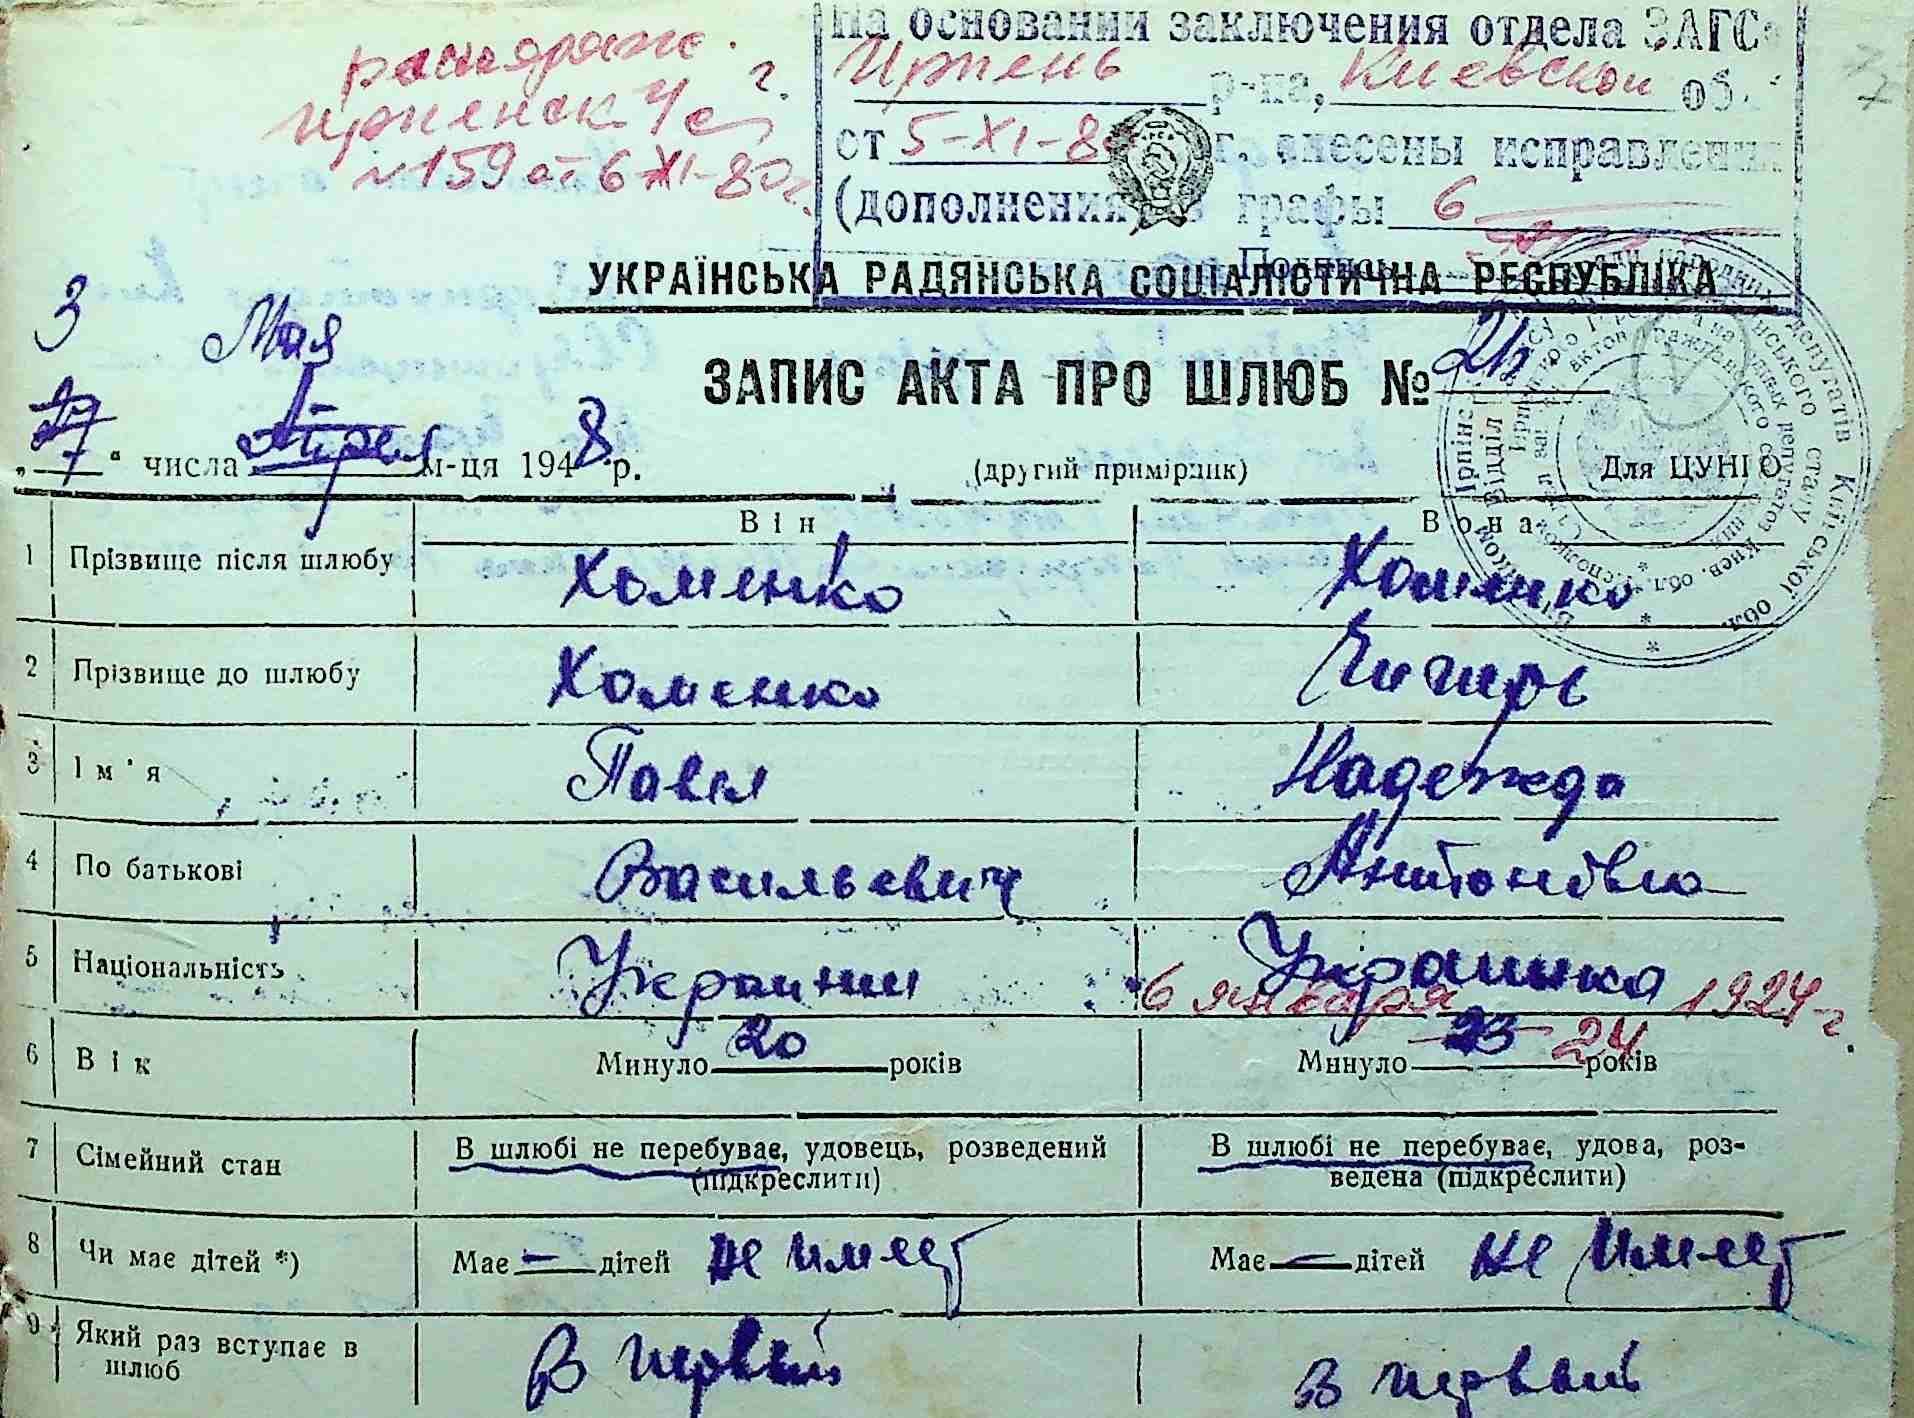 распоряж.
ирпенск г/с г.
№159 от 6-XI-80г.
На основании заключения отдела ЗАГСа
Ирпень р-на, Киевской об.
от 5-XI-80 г. внесены исправления
(дополнения) в графы 6
Подпись
УКРАЇНСЬКА РАДЯНСЬКА СОЦІАЛІСТИЧНА РЕСПУБЛІКА
3 Мая
ЗАПИС АКТА ПРО ШЛЮБ № 26
„ “ числа апрел м-ця 1948 р.
(другий примірник)
Для ЦУНГО
Він
Вона
1 Прізвище після шлюбу Хоменко Хоменко
2 Прізвище до шлюбу Хоменко Чигирь
3 Ім'я Павел Надежда
4 По батькові Васильевич Антоновна
5 Національність Украинец Украинка
6 января 1924 г.
6 Вік Минуло 20 років Минуло 23 24 років
7 Сімейний стан В шлюбі не перебуває, удовець, розведений (підкреслити) В шлюбі не перебуває, удова, роз-
ведена (підкреслити)
8 Чи має дітей *) Має — дітей не имеет Має — дітей не имеет
9 Який раз вступає в
шлюб В первый В первый